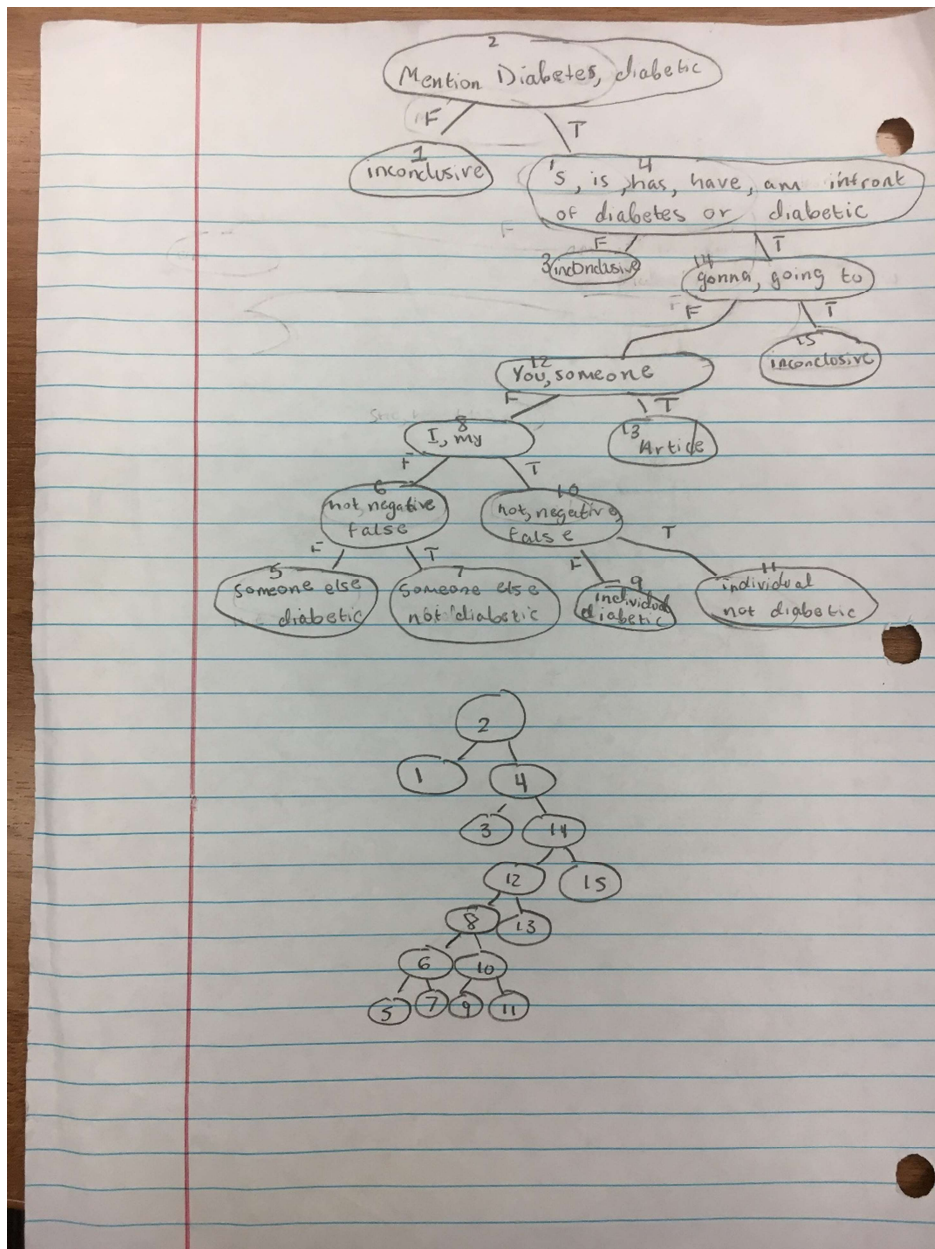 2
Mention Diabetes, diabetic
F T
1
inconclusive
4
's, is, has, have, am infront
of diabetes or diabetic
F T
3 inconclusive
14
gonna, going to
F T
15
inconclusive
12
You, someone
F T
13 Article
8
I, my
F T
6
not, negative
false
10
not, negative,
false
F T
F T
5
someone else
diabetic
7
someone else
not diabetic
9
individual
diabetic
11
individual
not diabetic
2
1 4
3 14
12 15
8 13
6 10
5 7 9 11